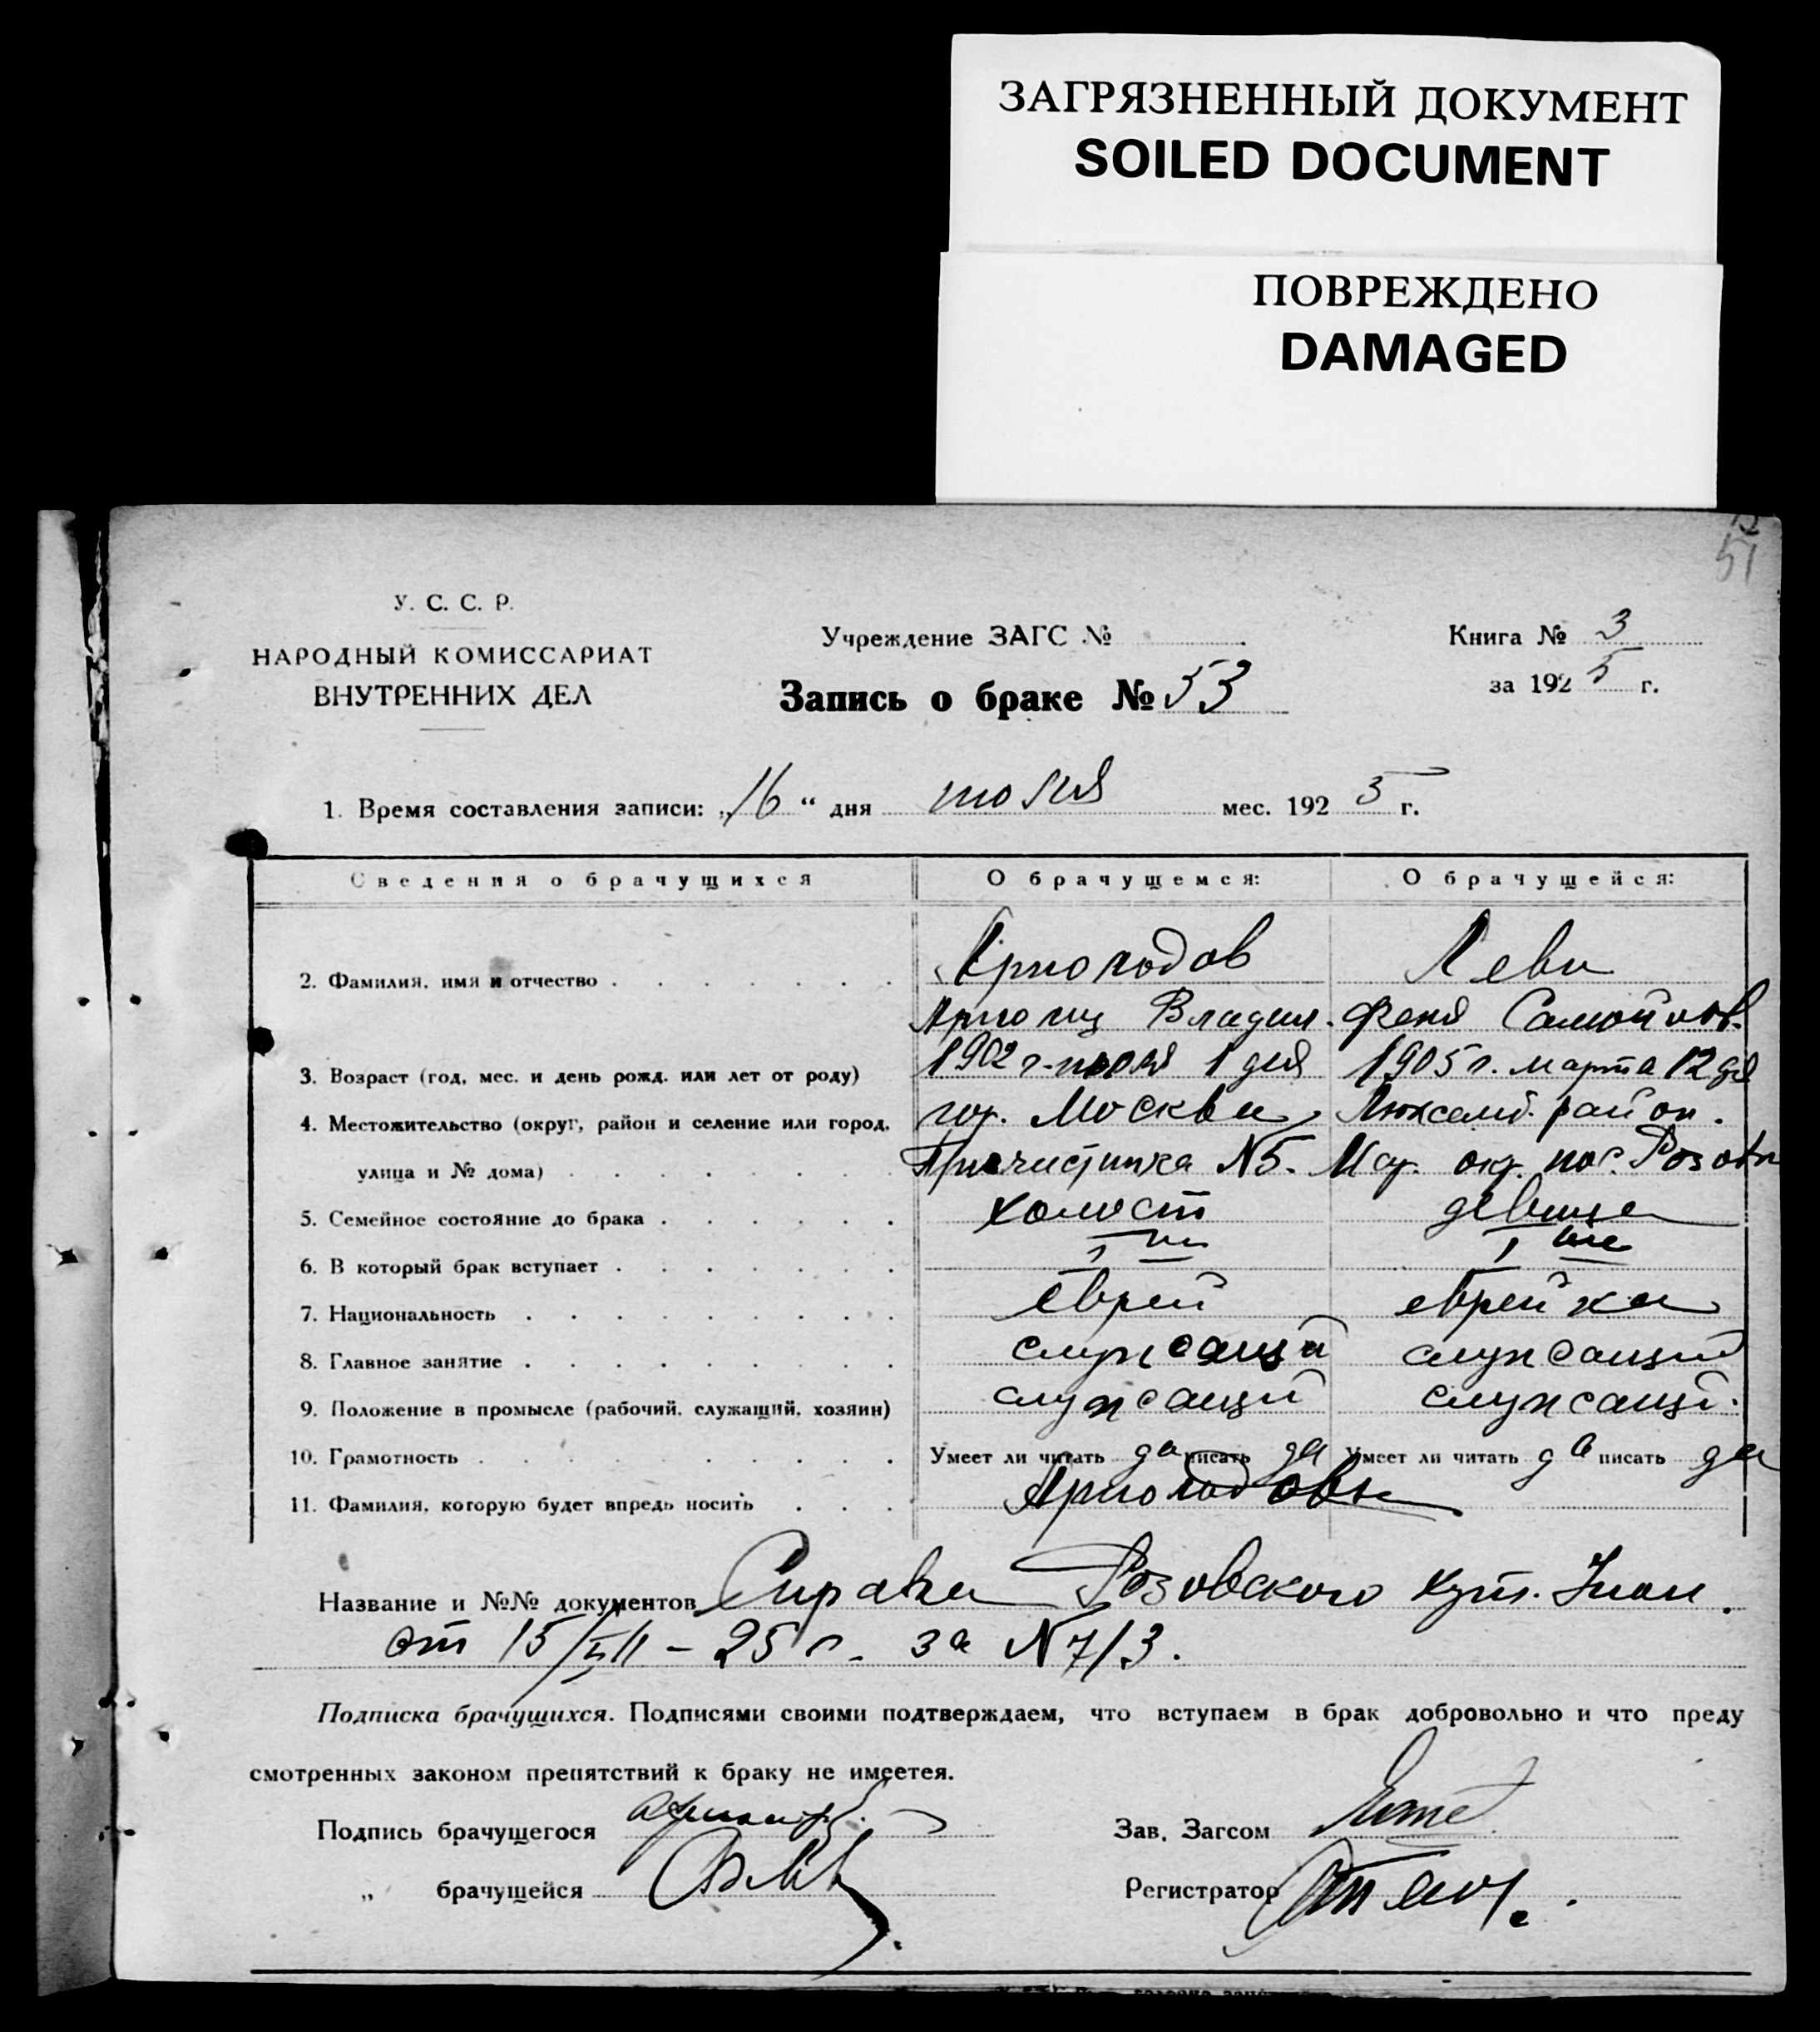 ЗАГРЯЗНЕННЫЙ ДОКУМЕНТ
SOILED DOCUMENT
ПОВРЕЖДЕНО
DAMAGED
51
У. С. С. Р.
НАРОДНЫЙ КОМИССАРИАТ
ВНУТРЕННИХ ДЕЛ
Учреждение ЗАГС №
Запись о браке № 53
Книга № 3
за 1925 г.
1. Время составления записи: „16“ дня июля мес. 1925 г.
Сведения о брачущихся О брачущемся: О брачущейся:
2. Фамилия, имя и отчество Арнольдов Леви
Владим. Феня Самойлов.
3. Возраст (год, мес. и день рожд. или лет от роду) 1902 г. июля 1 дня 1905 г. марта 12 дня
4. Местожительство (округ, район и селение или город, гор. Москва Люксемб. район.
улица и № дома) Пречистинка №5. Мар. окр. пос. Розовка
5. Семейное состояние до брака холост девица
6. В который брак вступает I ый I ые
7. Национальность еврей еврейка
8. Главное занятие служащий служащий
9. Положение в промысле (рабочий, служащий, хозяин) служащий служащ.
10. Грамотность Умеет ли читать да писать да Умеет ли читать да писать да
11. Фамилия, которую будет впредь носить Арнольдовы
Название и №№ документов Справка Розовского
от 15/VII – 25 г. за №7/3.
Подписка брачущихся. Подписями своими подтверждаем, что вступаем в брак добровольно и что преду
смотренных законом препятствий к браку не имеетея.
Подпись брачущегося
„ брачущейся
Зав. Загсом
Регистратор